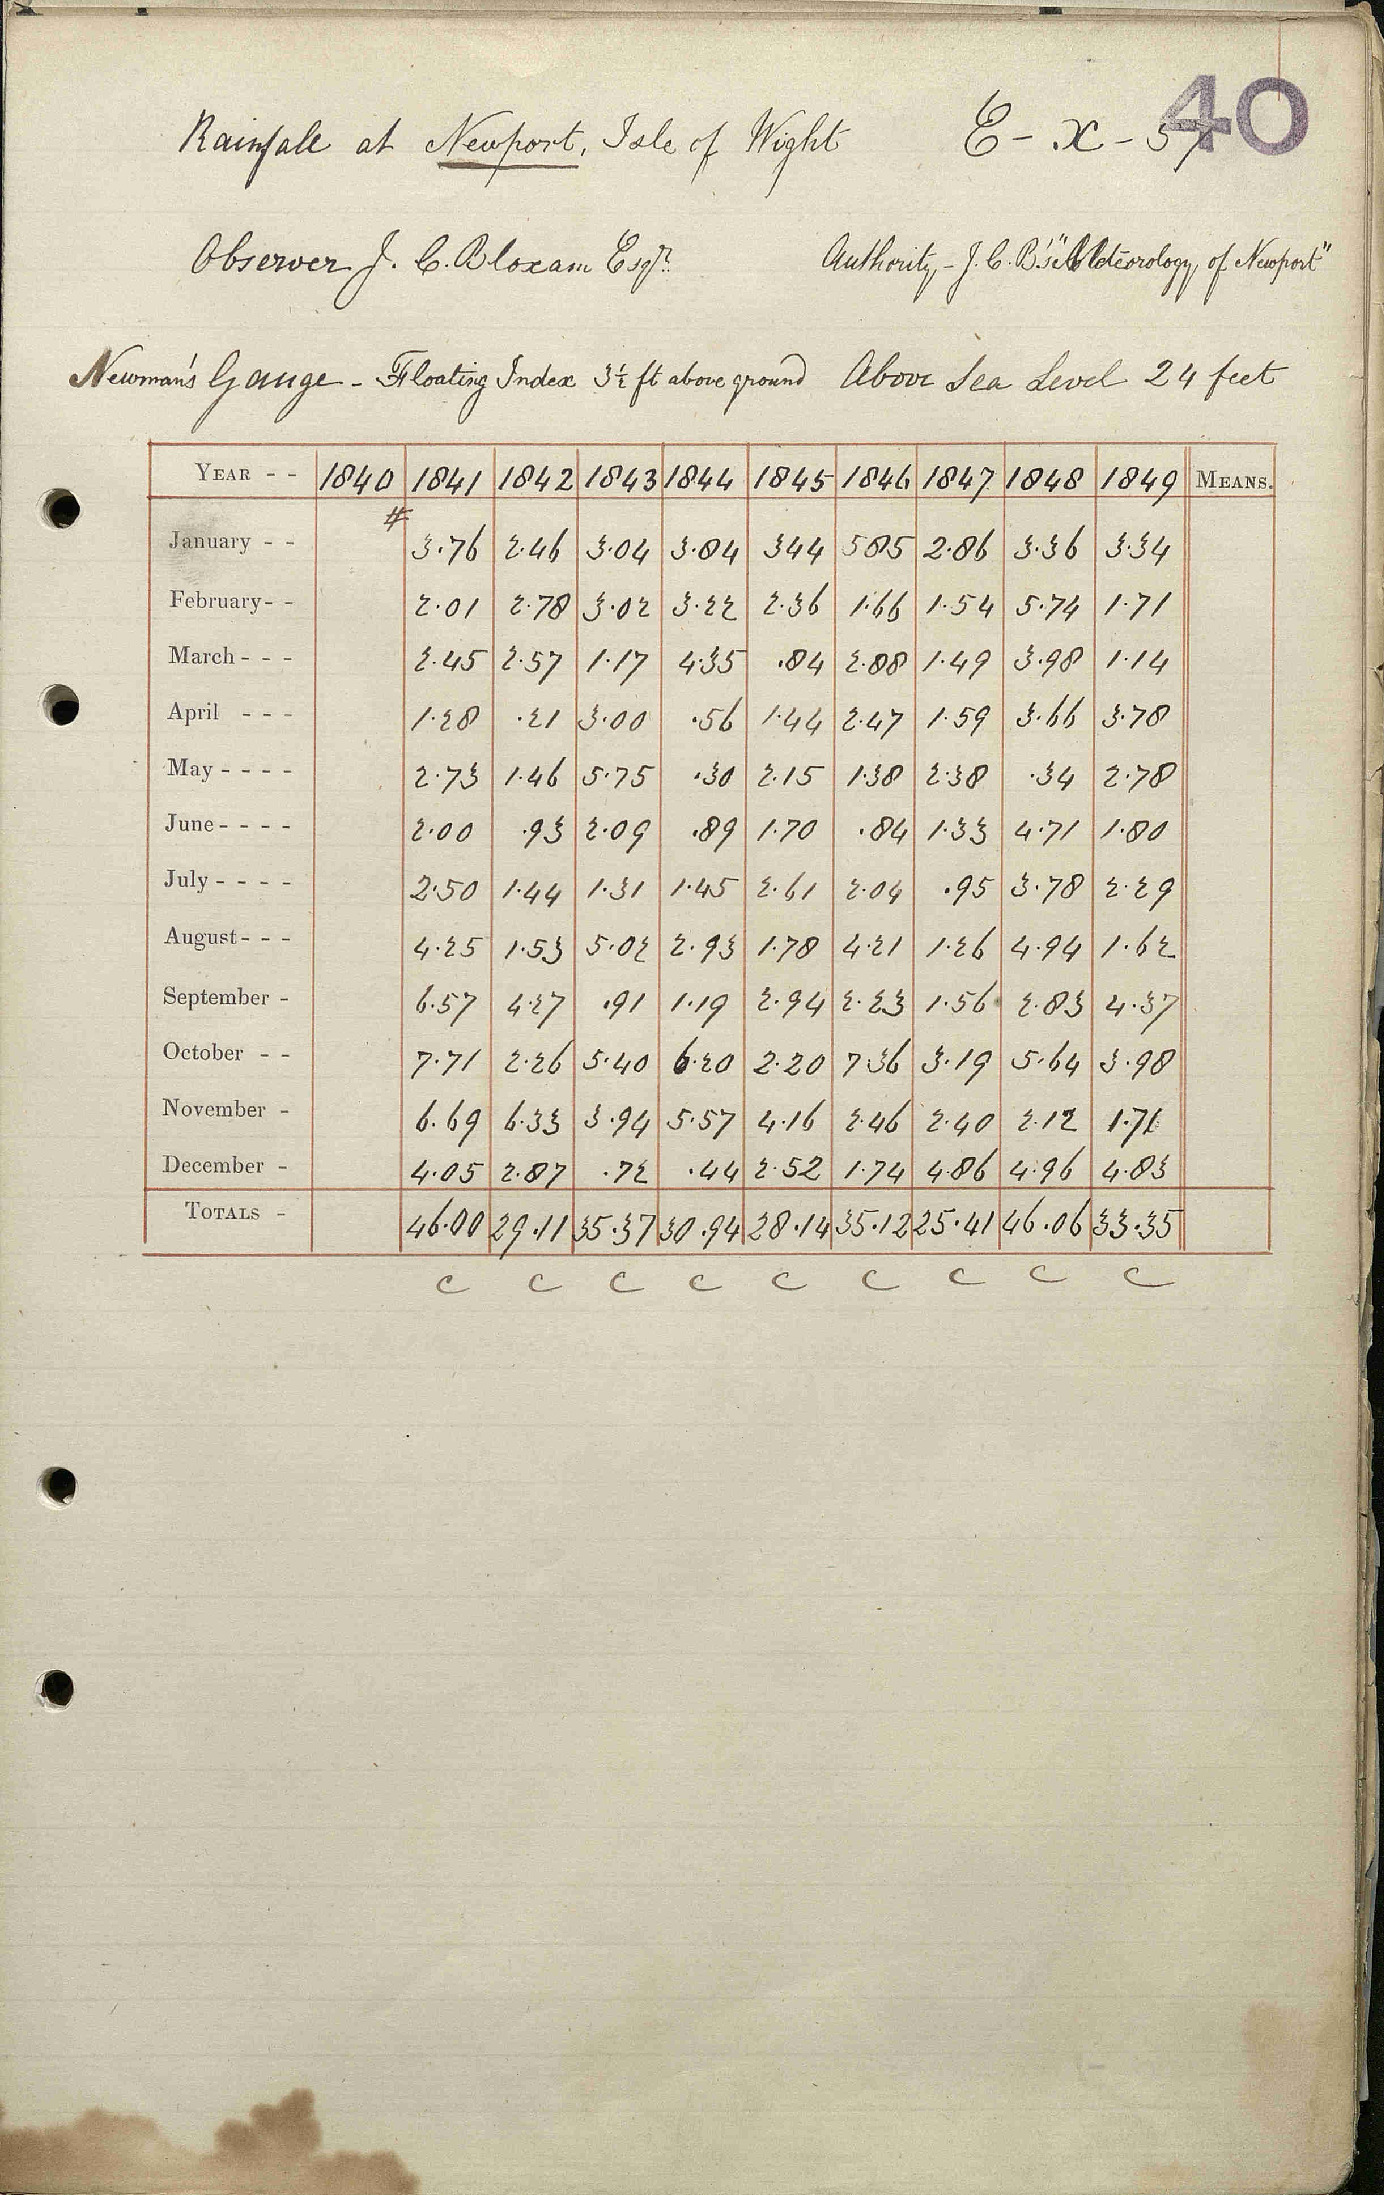 40
Rainfall at Newport, Isle of Wight E - X - 57
Observer J. C. Bloxam Esqr. Authority - J. C. B's "Meteorology of Newport"
Newman's Gauge - Floating Index 3½ ft above ground Above Sea Level 24 feet
YEAR - - 1840 1841 1842 1843 1844 1845 1846 1847 1848 1849 MEANS.
#
January - - 3·76 2·46 3·04 3·84 344 585 2·86 3·36 3·34
February - - 2·01 2·78 3·02 3·22 2·36 1·66 1·54 5·74 1·71
March - - - 2·45 2·57 1·17 4·35 ·84 2·88 1·49 3·98 1·14
April - - - 1·28 ·21 3·00 ·56 1·44 2·47 1·59 3·66 3·78
May - - - - 2·73 1·46 5·75 ·30 2·15 1·38 2·38 ·34 2·78
June - - - - 2·00 ·93 2·09 ·89 1·70 ·84 1·33 4·71 1·80
July - - - - 2·50 1·44 1·31 1·45 2·61 2·04 ·95 3·78 2·29
August - - - 4·25 1·53 5·02 2·93 1·78 4·21 1·26 4·94 1·62
September - 6·57 4·27 ·91 1·19 2·94 2·23 1·56 2·83 4·37
October - - 7·71 2·26 5·40 6·20 2·20 736 3·19 5·64 3·98
November - 6·69 6·33 3·94 5·57 4·16 2·46 2·40 2·12 1·71
December - 4·05 2·87 ·72 ·44 2·52 1·74 4·86 4·96 4·83
TOTALS - 46·00 29·11 35·37 30·94 28·14 35·12 25·41 46·06 33·35
C C C C C C C C C